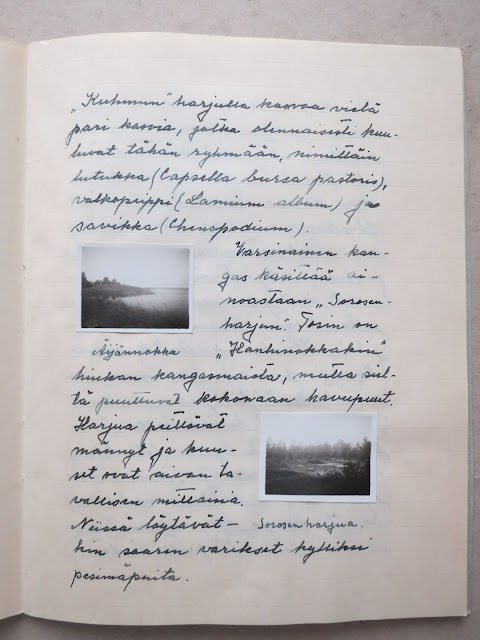 „Kuhmun" harjulla kasvaa vielä
pari kasvia, jotka olennaisesti kuu-
luvat tähän ryhmään, nimittäin
lutukka (Capsella bursa pastoris),
valkopeippi (Lamium album) ja
savikka (Chenopodium).
Varsinainen kan-
gas käsittää ai-
noastaan „Sorosen-
harjun". Tosin on
Äijännokka
„Hanhinokkakin"
hiukan kangasmaista, mutta siel-
tä puuttuvat kokonaan havupuut.
Harjua peittävät
männyt ja kuu-
set ovat aivan ta-
vallisen mittaisia.
Niissä löytävät-
Sorosenharjua.
hin saaren varikset kylliksi
pesimäpuita.